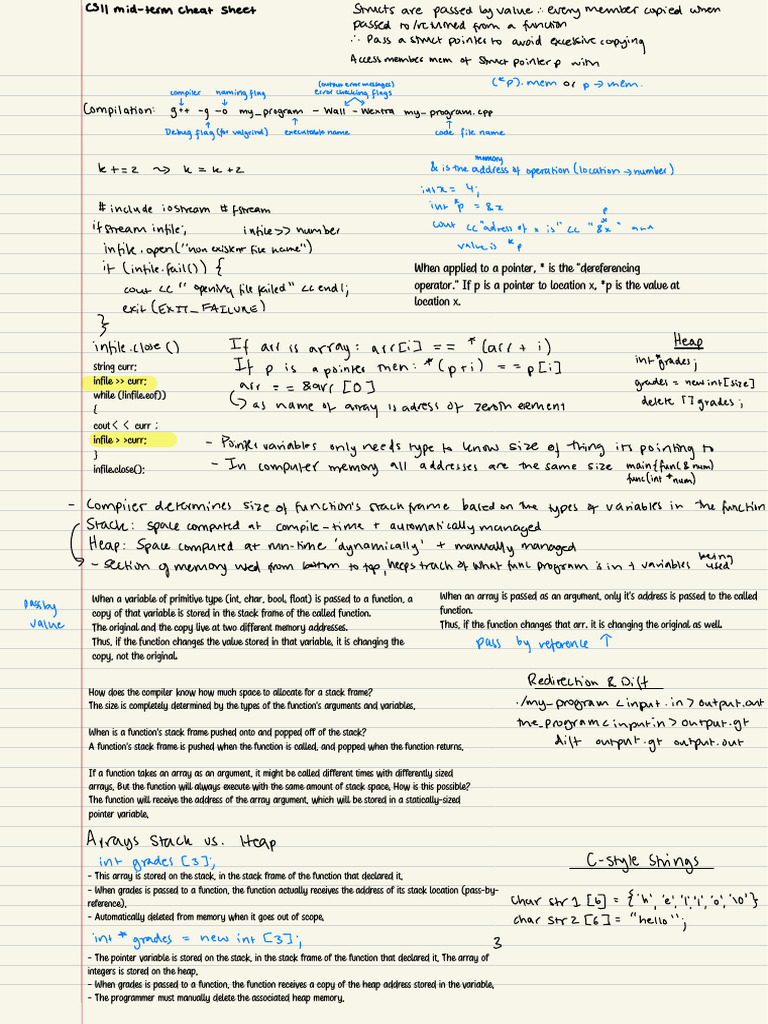 CS11 mid-term cheat sheet
Structs are passed by value ∴ every member copied when
passed to/returned from a function
∴ Pass a struct pointer to avoid excessive copying
Access member mem of struct pointer p with
(*p).mem or p → mem.
compiler naming flag (output error messages) error checking flags
Compilation: g++ -g -o my_program -Wall -Wextra my_program.cpp
Debug flag (for valgrind) executable name code file name
k += 2 ⤳ k = k + 2
memory
& is the address of operation (location → number)
int x = 4;
int *p = &x
p
cout << "adress of x is" << "&x" <<
value is *p
# include iostream # fstream
ifstream infile; infile >> number
infile.open("non existent file name")
if (infile.fail()) {
cout << "opening file failed" << endl;
exit (EXIT_FAILURE)
}
}
When applied to a pointer, * is the "dereferencing
operator." If p is a pointer to location x, *p is the value at
location x.
infile.close()
string curr;
infile >> curr;
while (!infile.eof))
{
cout< < curr ;
infile > >curr;
}
infile.close():
If arr is array: arr[i] == *(arr + i)
If p is a pointer then: *(p+i) == p[i]
arr == &arr [0]
↳ as name of array is adress of zeroth element
Heap
int *grades;
grades = new int [size]
delete [] grades;
- Pointer variables only needs type to know size of thing its pointing to
- In computer memory all addresses are the same size
main (func(&num)
func(int *num)
- Compiler determines size of function's stack frame based on the types of variables in the function
Stack: space computed at compile-time + automatically managed
Heap: Space computed at run-time 'dynamically' + manually managed
- section of memory used from bottom to top, keeps track of what func program is in + variables being used
pass by
value
When a variable of primitive type (int, char, bool, float) is passed to a function, a
copy of that variable is stored in the stack frame of the called function.
The original and the copy live at two different memory addresses.
Thus, if the function changes the value stored in that variable, it is changing the
copy, not the original.
When an array is passed as an argument, only it's address is passed to the called
function.
Thus, if the function changes that arr. it is changing the original as well.
pass by reference ↑
How does the compiler know how much space to allocate for a stack frame?
The size is completely determined by the types of the function's arguments and variables.
When is a function's stack frame pushed onto and popped off of the stack?
A function's stack frame is pushed when the function is called, and popped when the function returns.
Redirection & Diff
./my_program < input.in > output.out
the_program < input in > output.gt
diff output.gt output.out
If a function takes an array as an argument, it might be called different times with differently sized
arrays. But the function will always execute with the same amount of stack space. How is this possible?
The function will receive the address of the array argument, which will be stored in a statically-sized
pointer variable.
Arrays Stack vs. Heap
int grades [3];
- This array is stored on the stack, in the stack frame of the function that declared it.
- When grades is passed to a function, the function actually receives the address of its stack location (pass-by-
reference).
- Automatically deleted from memory when it goes out of scope.
int * grades = new int [3];
- The pointer variable is stored on the stack, in the stack frame of the function that declared it. The array of
integers is stored on the heap.
- When grades is passed to a function, the function receives a copy of the heap address stored in the variable.
- The programmer must manually delete the associated heap memory.
C-Style Strings
char str 1 [6] = {'h', 'e', 'l', 'l', 'o', '\0'}
char str 2 [6] = "hello";
3